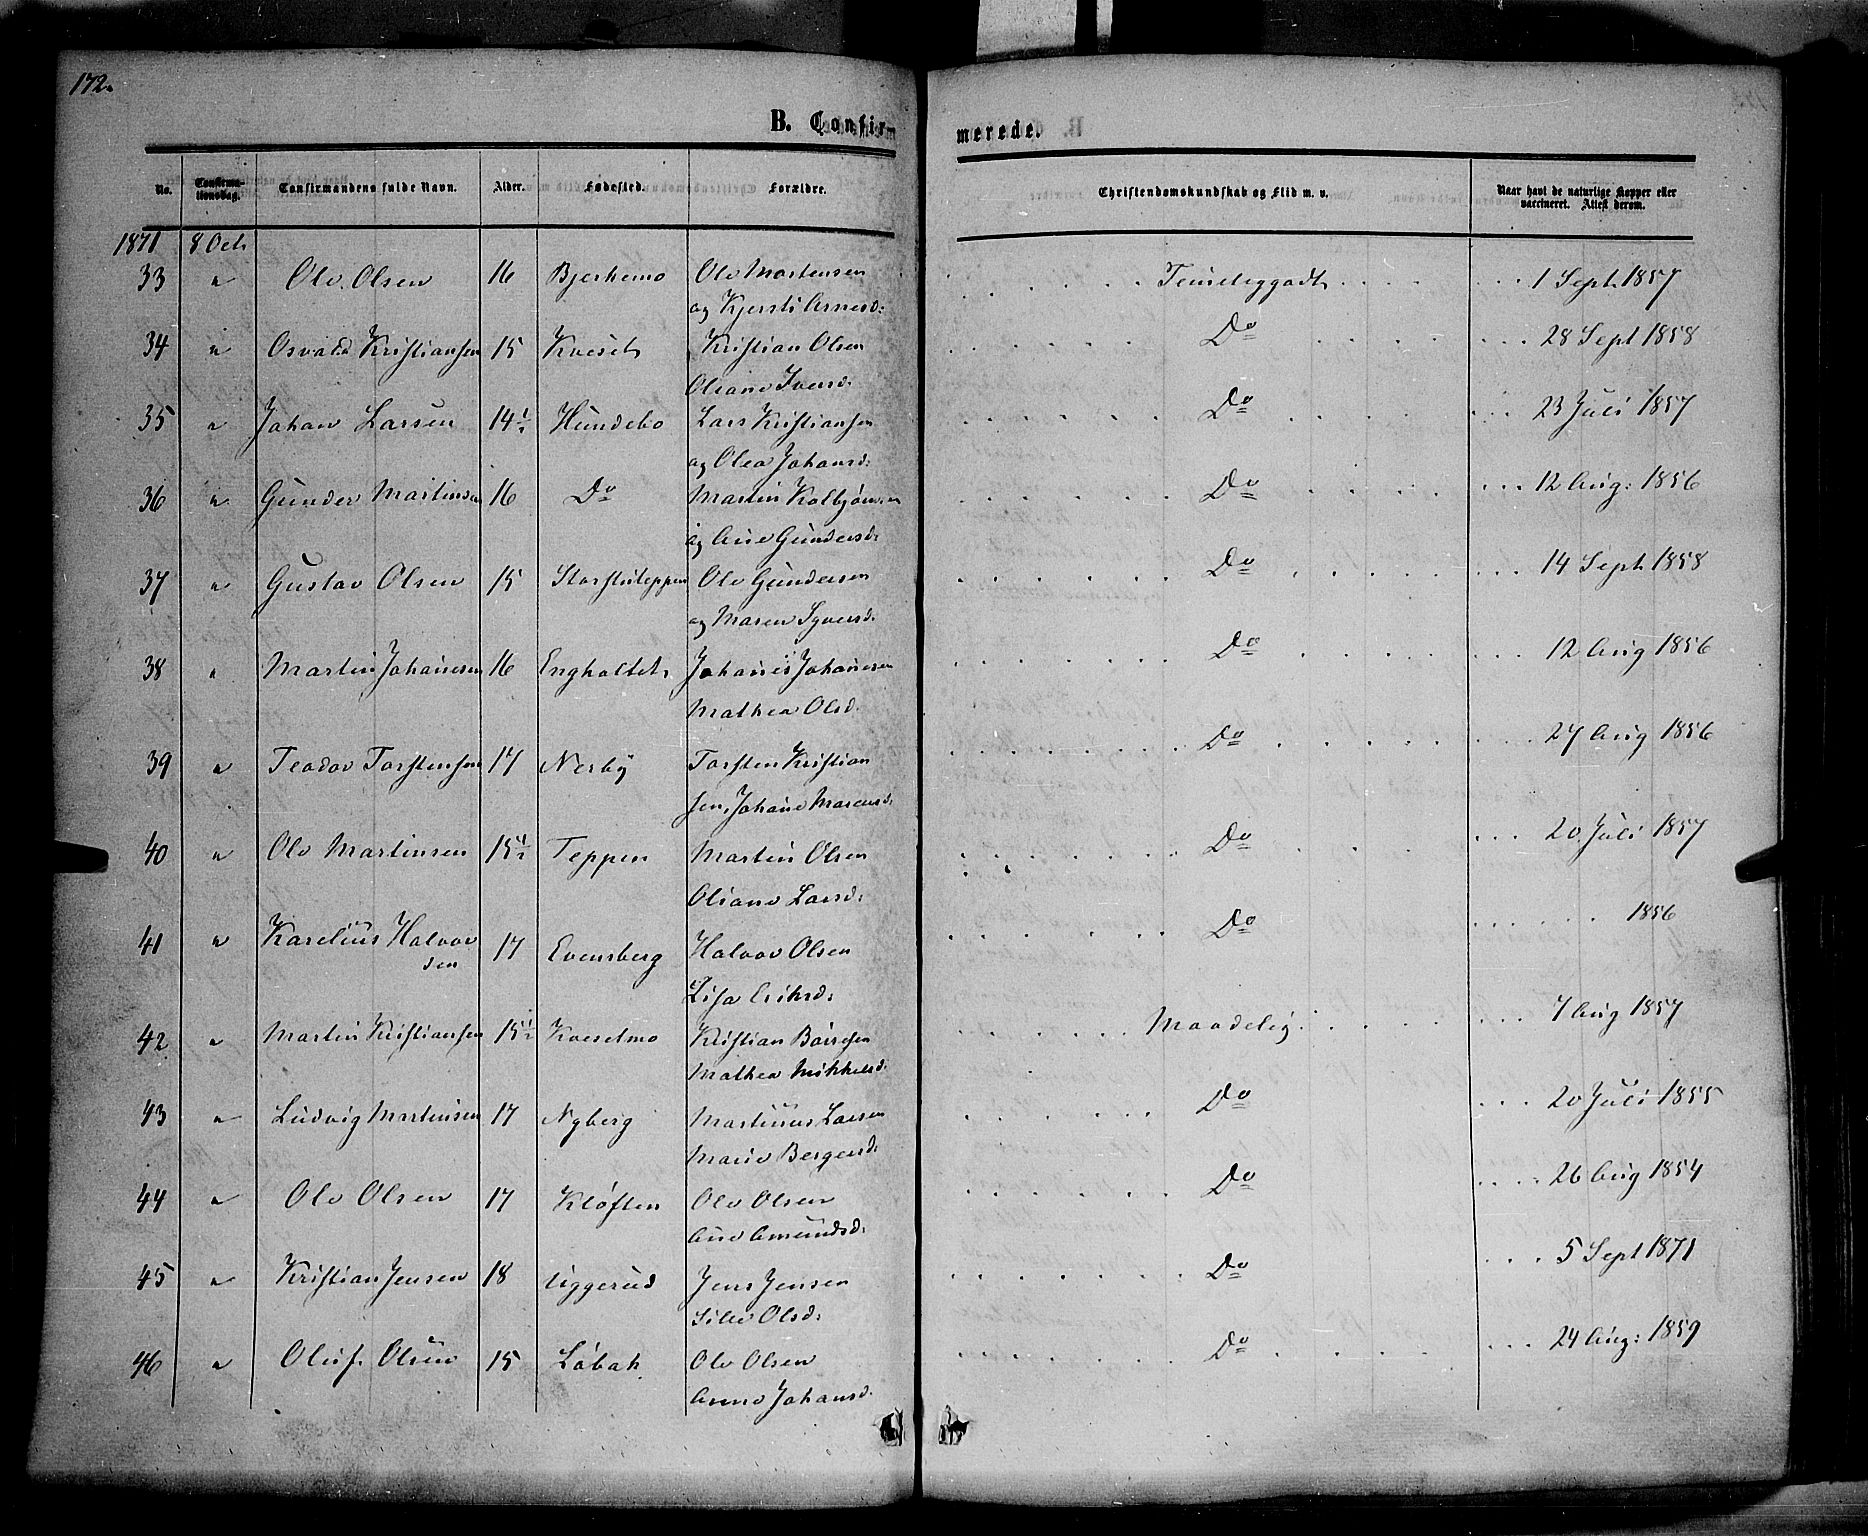 172.
B. Confirmerede.
No. Confirmationsdag. Confirmandens fulde Navn. Alder. Fødested. Forældre. Christendomskundskab og Flid m. v. Naar havt de naturlige Kopper eller vaccineret. Attest derom.
1871 8 Oct.
33 " Ole Olsen 16 Bjerkemo Ole Mortensen . . . . . . Temeliggodt . . . . . . . 1 Sept. 1857
og Kjersti Arnesd:
34 " Osvald Kristiansen 15 Kveset Kristian Olsen . . . . . . Do . . . . . . . 28 Sept 1858
Oliane Iversd.
35 " Johan Larsen 14½ Hundebo Lars Kristiansen . . . . . . Do . . . . . . . 23 Juli 1857
og Olea Johansd:
36 " Gunder Martinsen 16 Do Martin Kolbjønsen . . . . . . Do . . . . . . . 12 Aug: 1856
og Ane Gundersd.
37 " Gustav Olsen 15 Storstuteppen Ole Gundersen . . . . . . Do . . . . . . . 14 Sept 1858
og Maren Syversd.
38 " Martin Johanesen 16 Engholtet Johanes Johanesen . . . . . . Do . . . . . . . 12 Aug 1856
Mathea Olsd.
39 " Teodor Torstensen 17 Nerby Torsten Kristian . . . . . . Do . . . . . . . 27 Aug 1856
sen, Johane Marcusd.
40 " Ole Martinsen 15½ Teppen Martin Olsen . . . . . . Do . . . . . . . 20 Juli 1857
Oliane Larsd.
41 " Karelius Halvor 17 Evensberg Halvor Olsen . . . . . . Do . . . . . . . 1856
sen Lisa Eriksd:
42 " Martin Kristiansen 15½ Kvesetmo Kristian Børresen . . . . . . Maadelig . . . . . . . 7 Aug 1857
Mathea Mikkelsd.
43 " Ludvig Martinsen 17 Nyberg Martinus Larsen . . . . . . Do . . . 20 Juli 1855
Marie Bergersd.
44 " Ole Olsen 17 Kløften Ole Olsen . . . . . . Do . . . . 26 Aug 1854
Ane Amundsd:
45 " Kristian Jensen 18 Uggerud Jens Jensen . . . . . . Do . . . 5 Sept 1871
Silie Olsd:
46 " Oluf Olsen 15 Løbak Ole Olsen . . . . . . Do . . . . . . . 24 Aug: 1859
Anne Johansd.